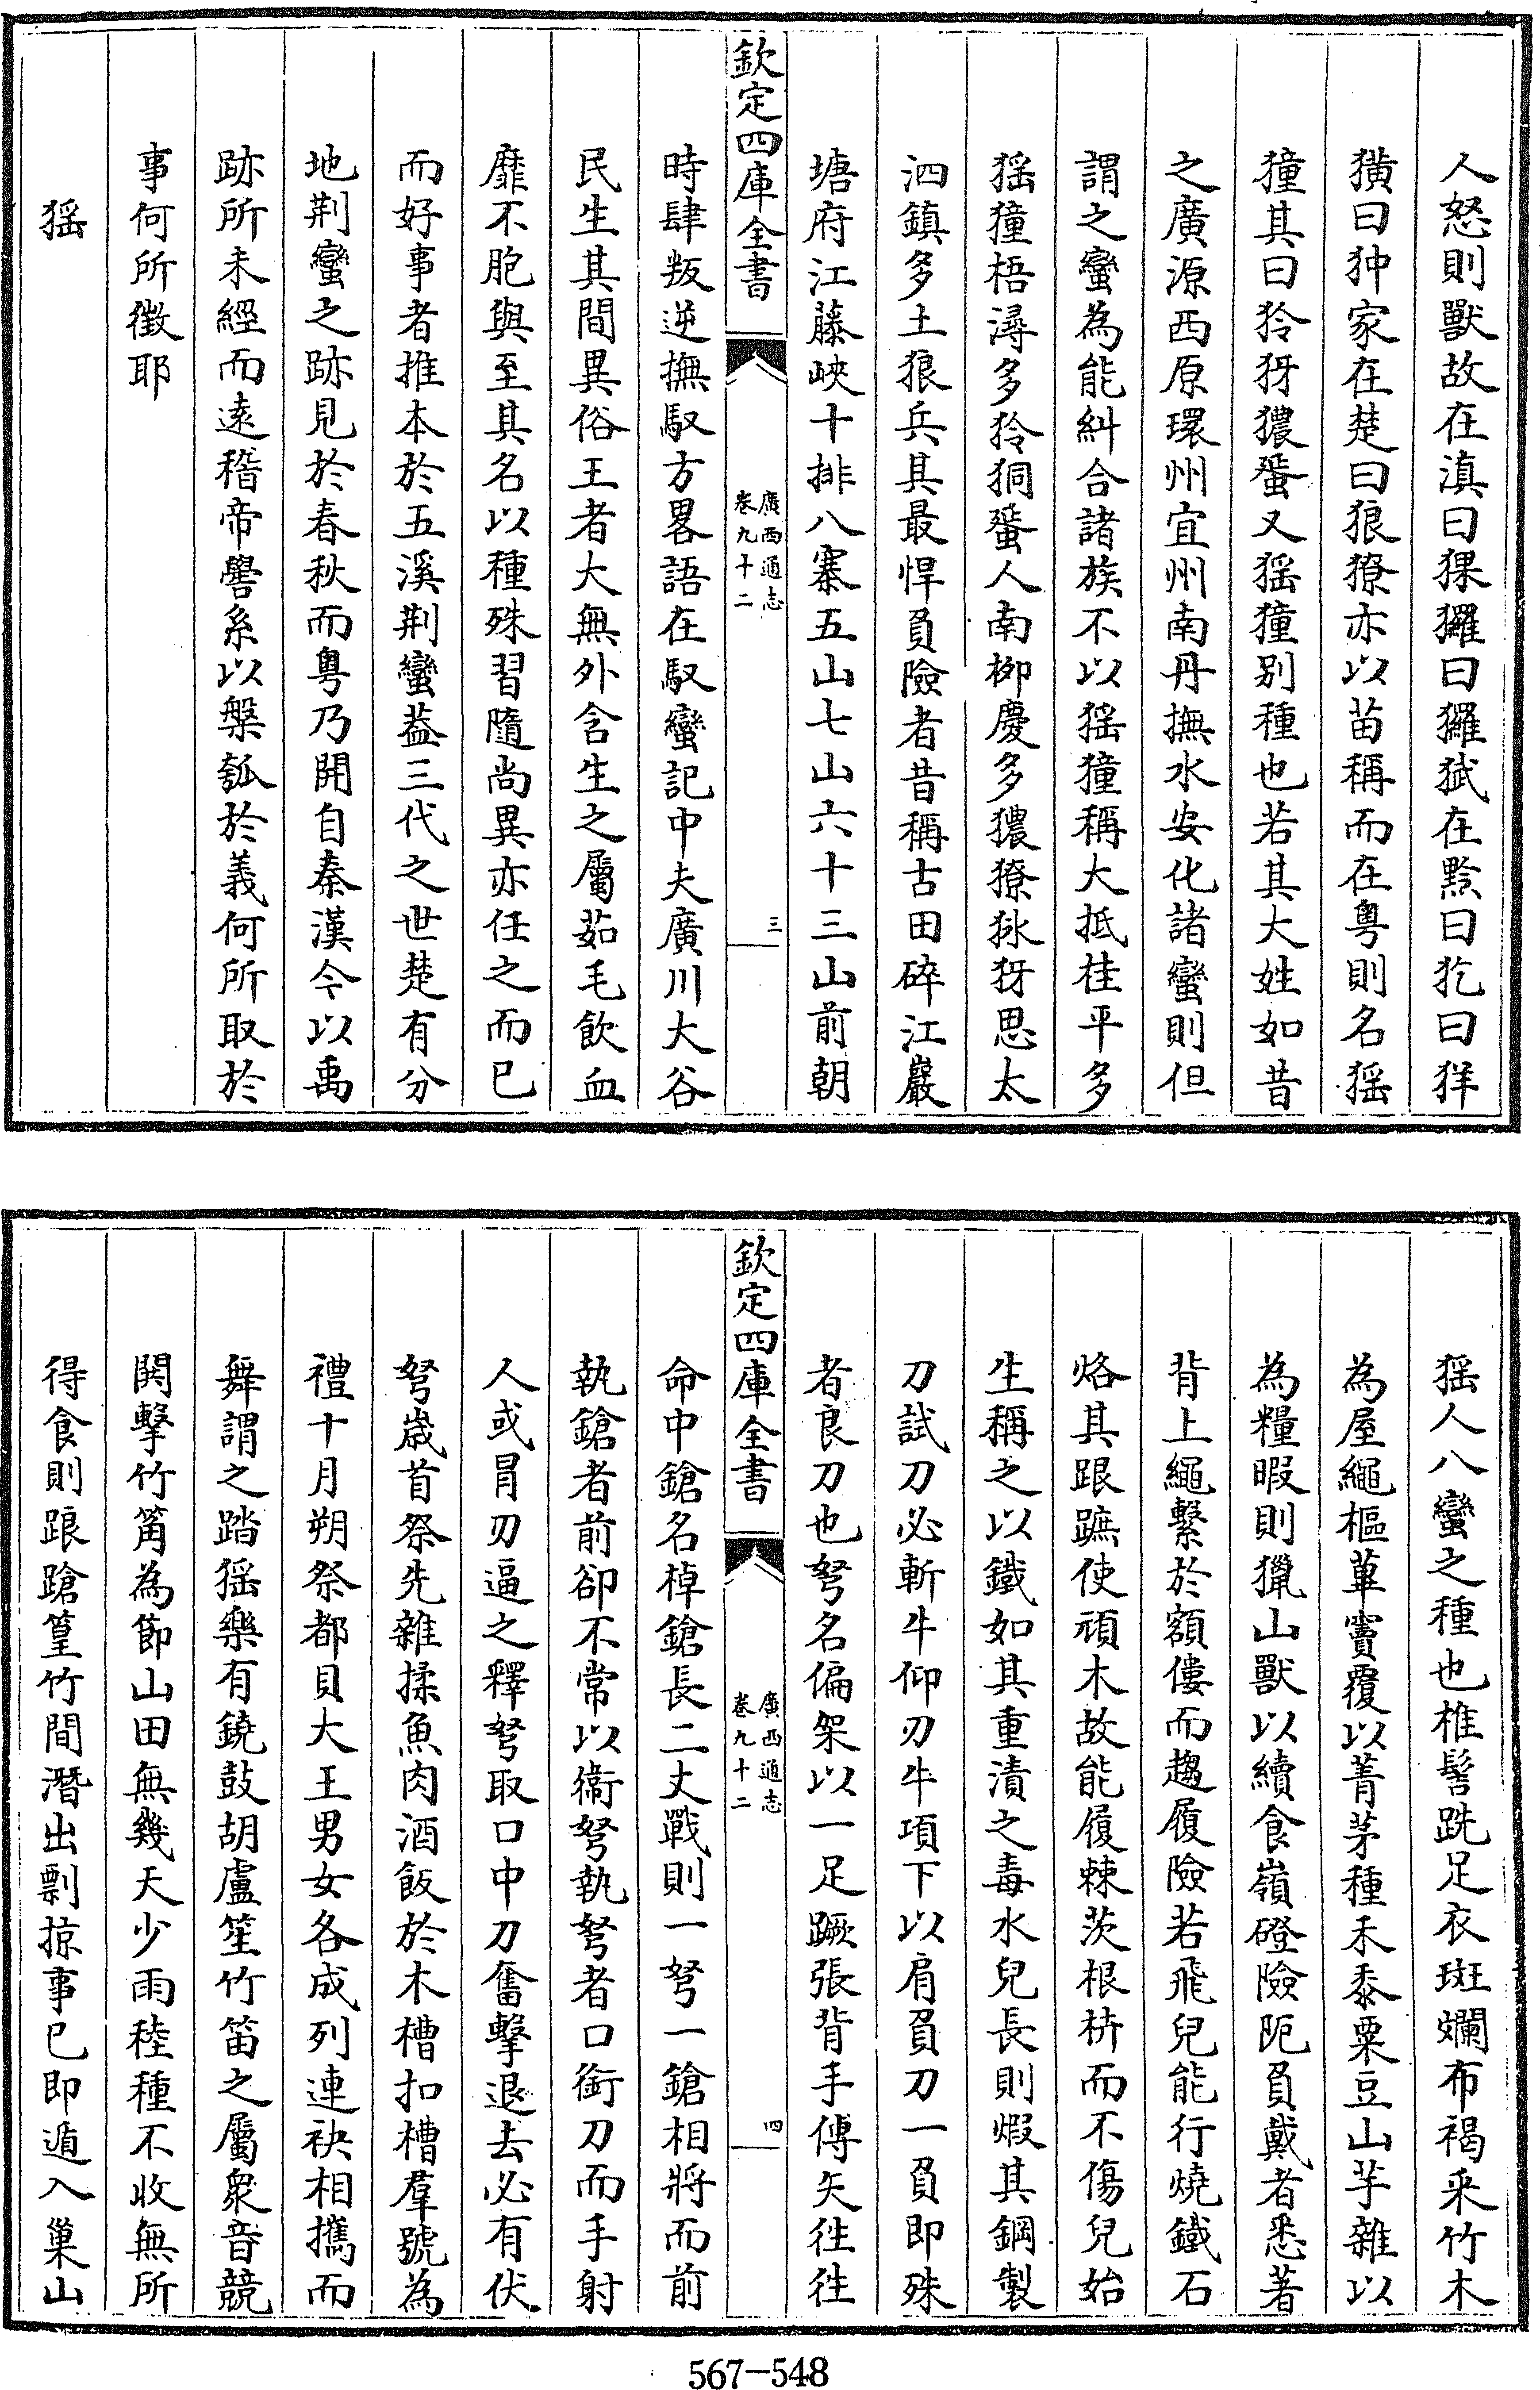 人怒則獸故在滇曰猓玀曰玀㺿在黔曰犵曰𤞏
獚曰狆家在楚曰狼獠亦以苗稱而在粤則名猺
獞其曰狑犽獽蜑又猺獞别種也若其大姓如昔
之廣源西原環州宜州南丹撫水安化諸蠻則但
謂之蠻為能糾合諸族不以猺獞稱大抵桂平多
猺獞梧潯多狑狪蜑人南栁慶多獽獠㹳犽思太
泗鎮多土狼兵其最悍負險者昔稱古田碎江巖
塘府江藤峽十排八寨五山七山六十三山前朝
欽定四庫全書
廣西通志
卷九十二
三
時肆叛逆撫馭方畧語在馭蠻記中夫廣川大谷
民生其間異俗王者大無外含生之屬茹毛飲血
靡不胞與至其名以種殊習隨尚異亦任之而已
而好事者推本於五溪荆蠻葢三代之世楚有分
地荆蠻之跡見於春秋而粤乃開自秦漢今以禹
跡所未經而逺稽帝嚳系以槃瓠於義何所取於
事何所徵耶
猺
猺人八蠻之種也椎髻跣足衣斑斕布褐采竹木
為屋繩樞蓽竇覆以菁茅種禾黍粟豆山芋雜以
為糧暇則獵山獸以續食嶺磴險阨負戴者悉著
背上繩繫於額僂而趨履險若飛兒能行燒鐵石
烙其跟蹠使頑木故能履棘茨根枿而不傷兒始
生稱之以鐵如其重漬之毒水兒長則煅其鋼製
刀試刀必斬牛牛仰刃牛項下以肩負刀一負即殊
者良刀也弩名偏架以一足蹶張背手傅矢徃徃
欽定四庫全書
廣西通志
卷九十二
四
命中鎗名棹鎗長二丈戰則一弩一鎗相將而前
執鎗者前卻不常以衞弩執弩者口銜刀而手射
人或冒刃逼之釋弩取口中刀奮擊退去必有伏
弩歲首祭先雜揉魚肉酒飯於木槽扣槽羣號為
禮十月朔祭都貝大王男女各成列連袂相攜而
舞謂之踏猺樂有鐃鼓胡盧笙竹笛之屬衆音競
閧擊竹筩為節山田無幾天少雨稑種不收無所
得食則踉蹌篁竹間潛出剽掠事已即遁入巢山
567-548